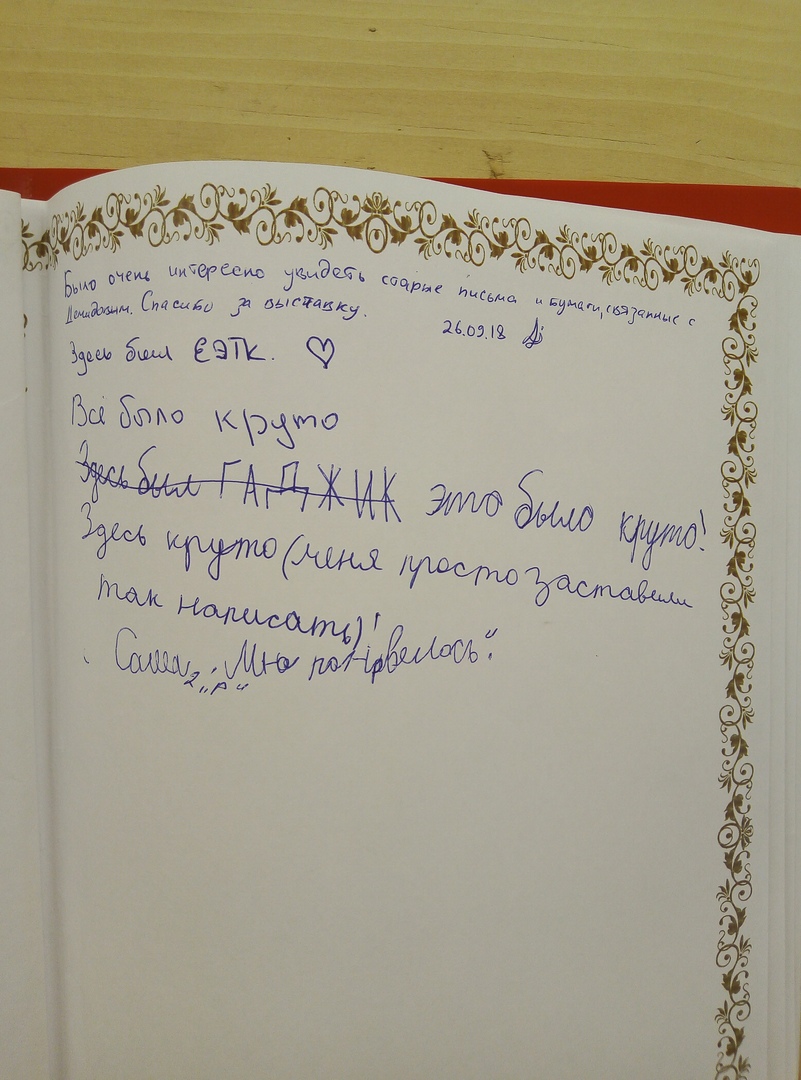 Было очень интересно увидеть старые письма и бумаги, связанные с
Демидовым. Спасибо за выставку. 26.09.18
Здесь был ЕЭТК.
Всё было круто
Здесь был ГАДЖИК это было круто!
Здесь круто (меня просто заставили
так написать)!
Саша 2 "А"